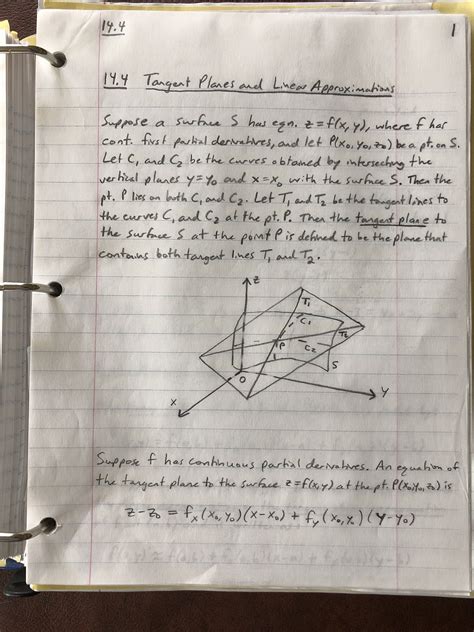 14.4
1
14.4 Tangent Planes and Linear Approximations
Suppose a surface S has eqn. z=f(x,y), where f has
cont. first partial derivatives, and let P(x₀,y₀,z₀) be a pt. on S.
Let C₁ and C₂ be the curves obtained by intersecting the
vertical planes y=y₀ and x=x₀ with the surface S. Then the
pt. P lies on both C₁ and C₂. Let T₁ and T₂ be the tangent lines to
the curves C₁ and C₂ at the pt. P. Then the tangent plane to
the surface S at the point P is defined to be the plane that
contains both tangent lines T₁ and T₂.
z
T₁
C₁
T₂
P
C₂
S
O
x
y
Suppose f has continuous partial derivatives. An equation of
the tangent plane to the surface z=f(x,y) at the pt. P(x₀,y₀,z₀) is
z-z₀ = fₓ(x₀,y₀)(x-x₀) + f_y(x₀,y₀)(y-y₀)